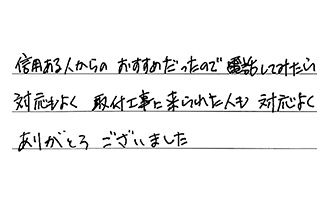 信用ある人からの おすすめだったので 電話してみたら
対応もよく 取付工事に来られた人も 対応よく
ありがとろ ございました